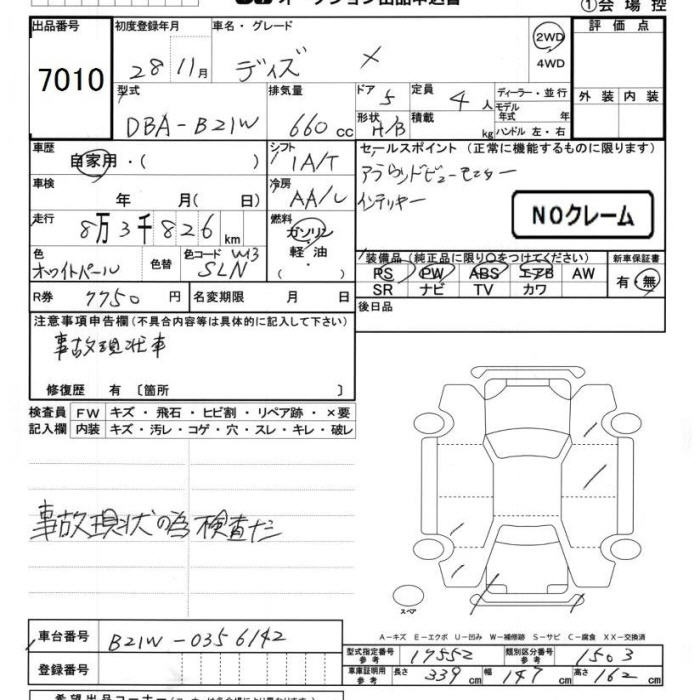 オークション出品申込書
①会場控
出品番号 7010
初度登録年月 28 11月
車名・グレード ディズ X
2WD
4WD
評価点
外装 内装
型式 DBA-B21W
排気量 660cc
ドア 5
形状 H/B
定員 4人
積載 kg
ディーラー・並行
モデル年式 年
ハンドル 左・右
車歴 自家用・( )
シフト IA/T
セールスポイント (正常に機能するものに限ります)
アラウンドビューモニター
インテリキー
NOクレーム
車検 年 月( 日)
冷房 AA/C
走行 8万3千826km
燃料 ガソリン
軽油
・( )
色 ホワイトパール
色替
色コード W13
SLN
装備品 (純正品に限り○をつけてください)
PS PW ABS エアB AW
SR ナビ TV カワ
新車保証書
有・無
R券 7750円
名変期限 月 日
後日品
注意事項申告欄 (不具合内容等は具体的に記入して下さい)
事故現状車
修復歴 有 〔箇所 〕
検査員 FW キズ・飛石・ヒビ割・リペア跡・×要
記入欄 内装 キズ・汚レ・コゲ・穴・スレ・キレ・破レ
事故現状の為検査だ
スペア
A-キズ E-エクボ U-凹み W-補修跡 S-サビ C-腐食 XX-交換済
車台番号 B21W-0356142
登録番号
型式指定番号 参考 17552
類別区分番号 参考 1503
車庫証明用 参考 長さ 339cm 幅 147cm 高さ 162cm
希望出品コーナー